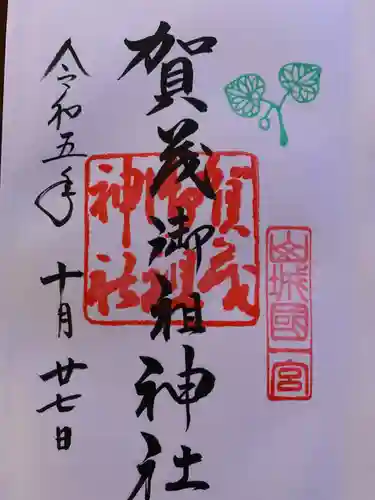 山城國一宮
賀茂御祖神社
賀茂御祖神社
令和五年十月廿七日